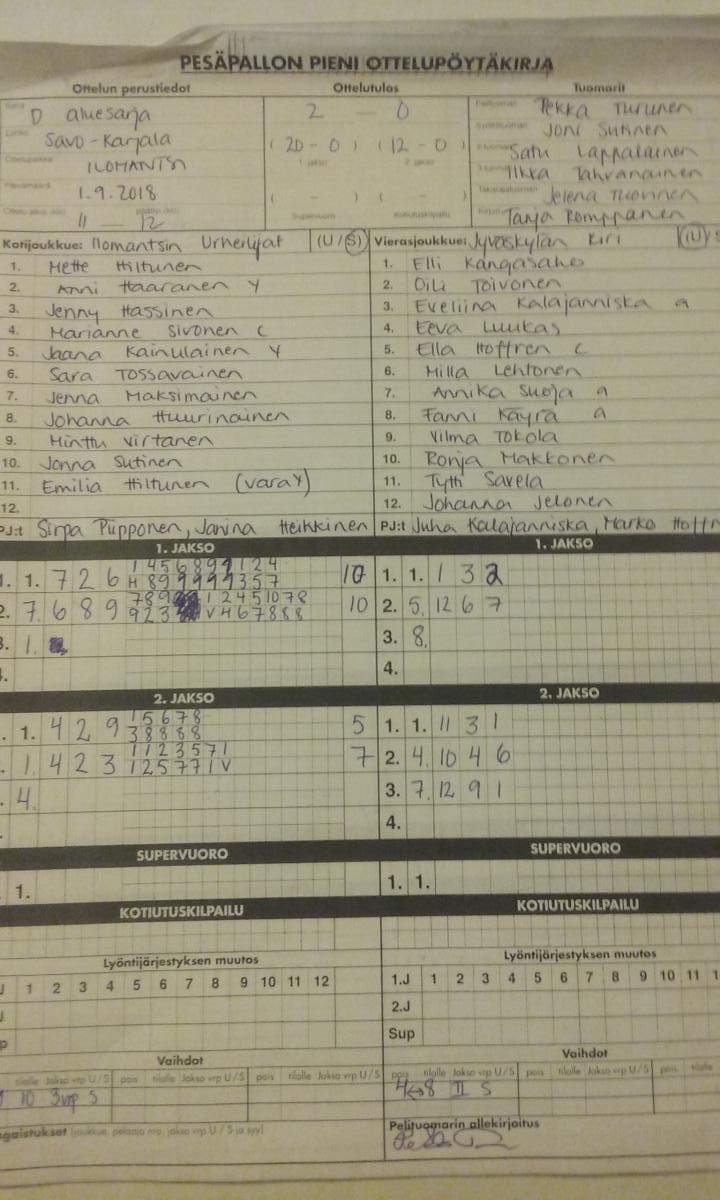 PESÄPALLON PIENI OTTELUPÖYTÄKIRJA
Ottelun perustiedot Ottelutulos Tuomarit
D aluesarja 2 - 0 Pekka Turunen
Savo-Karjala (20-0) (12-0) Joni Sutinen
ILOMANTSI 1. jakso 2. jakso Satu Lappalainen
1.9.2018 ( - ) ( - ) Ilkka Tahvanainen
Supervuoro Kotiutuskilpailu Jelena Tuovinen
11 - 12 Tanja Romppanen
Kotijoukkue: Ilomantsin Urheilijat (U/S) Vierasjoukkue: Jyväskylän Kiri (U/S
1. Mette Hiltunen 1. Elli Kangasaho
2. Anni Haaranen Y 2. Oili Toivonen
3. Jenny Hassinen 3. Eveliina Kalajanniska a
4. Marianne Sivonen C 4. Eeva Luukas
5. Jaana Kainulainen Y 5. Ella Hoffren C
6. Sara Tossavainen 6. Milla Lehtonen
7. Jenna Maksimainen 7. Annika Suoja a
8. Johanna Huurinainen 8. Fanni Käyrä a
9. Minttu Virtanen 9. Vilma Tokola
10. Jonna Sutinen 10. Ronja Makkonen
11. Emilia Hiltunen (vara Y) 11. Tytti Savela
12. 12. Johanna Jelonen
PJ:t Sirpa Piipponen, Janina Heikkinen PJ:t Juha Kalajanniska, Marko Hoffr
1. JAKSO 1. JAKSO
1. 1. 7 2 6 10 1. 1. 1 3 2
2. 7. 6 8 9 10 2. 5. 12 6 7
3. 1. 3. 8.
4. 4.
2. JAKSO 2. JAKSO
. 1. 4 2 9 1 5 6 7 8 5 1. 1. 11 3 1
3 8 8 8 8
. 1. 4 2 3 1 1 2 3 5 7 1 7 2. 4. 10 4 6
1 2 5 7 7 1 V
. 4. 3. 7. 12 9 1
4.
SUPERVUORO SUPERVUORO
1. 1. 1.
KOTIUTUSKILPAILU KOTIUTUSKILPAILU
Lyöntijärjestyksen muutos Lyöntijärjestyksen muutos
J 1 2 3 4 5 6 7 8 9 10 11 12 1.J 1 2 3 4 5 6 7 8 9 10 11 1
J 2.J
p Sup
Vaihdot Vaihdot
tilalle Jakso vrp U/S pois tilalle Jakso vrp U/S pois tilalle Jakso vrp U/S pois tilalle Jakso vrp U/S pois tilalle Jakso vrp U/S pois tilalle Ja
10 3vp S 4↔8 II S
ngaistukset (joukkue, pelaaja nro, jakso vrp U/S ja syy) Pelituomarin allekirjoitus